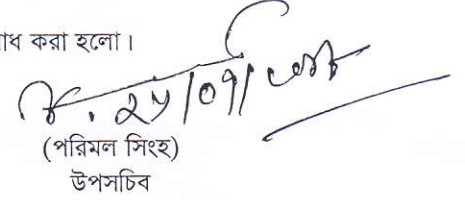 াধ করা হলো।
(পরিমল সিংহ)
উপসচিব